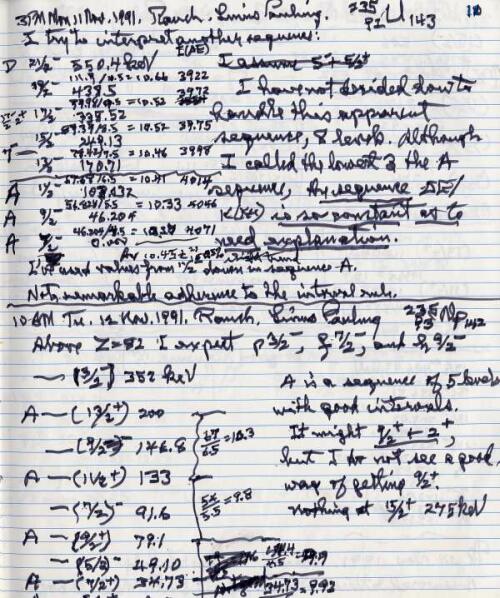 3 PM Mon 11 Nov. 1991, Ranch. Linus Pauling. 235 92 U 143
I try to interpret another sequence:
I(ΔE)
D 21/2⁻ 550.4 keV I assume 5⁻ + 5/2⁺
111.9/10.5 = 10.66 3922
19/2⁻ 438.5 3972 I have not decided how to
99.98/9.5 = 10.52
17/2⁻ 338.52 handle this apparent
89.39/8.5 = 10.52 39.75
15/2⁻ 249.13 sequence, 8 levels. Although
78.42/7.5 = 10.46 3998
13/2⁻ 170.71 I called the lowest 3 the A
67.69/6.5 = 10.41 4014
A 11/2⁻ 103.032 sequence, the sequence ΔE/
56.828/5.5 = 10.33 4046
A 9/2⁻ 46.204 is so constant as to
46.204/4.5 = 10.27 4071
A 7/2⁻ 0.00 need explanation.
Av 10.45 ±
I've used values from 17/2 down in sequence A.
Note remarkable adherence to the interval rule.
10 AM Tu. 12 Nov. 1991, Ranch, Linus Pauling 235 93 Np 142
Above Z=82 I expect p 3/2⁻, f 7/2⁻, and h 9/2⁻
— (13/2⁻) 352 keV A is a sequence of 5 levels
A — (13/2⁺) 200 with good intervals.
— (9/2⁻) 146.8 67/6.5 = 10.3 It might 9/2⁺ + 2⁺,
A — (11/2⁺) 133 but I do not see a good
— (7/2)⁻ 91.6 54/5.5 = 9.8 way of getting 9/2⁺.
A — (9/2⁺) 79.1 nothing at 15/2⁺ 275 keV
— (5/2)⁻ 49.10
A — (7/2⁺) 34.73 34.73 = 9.92